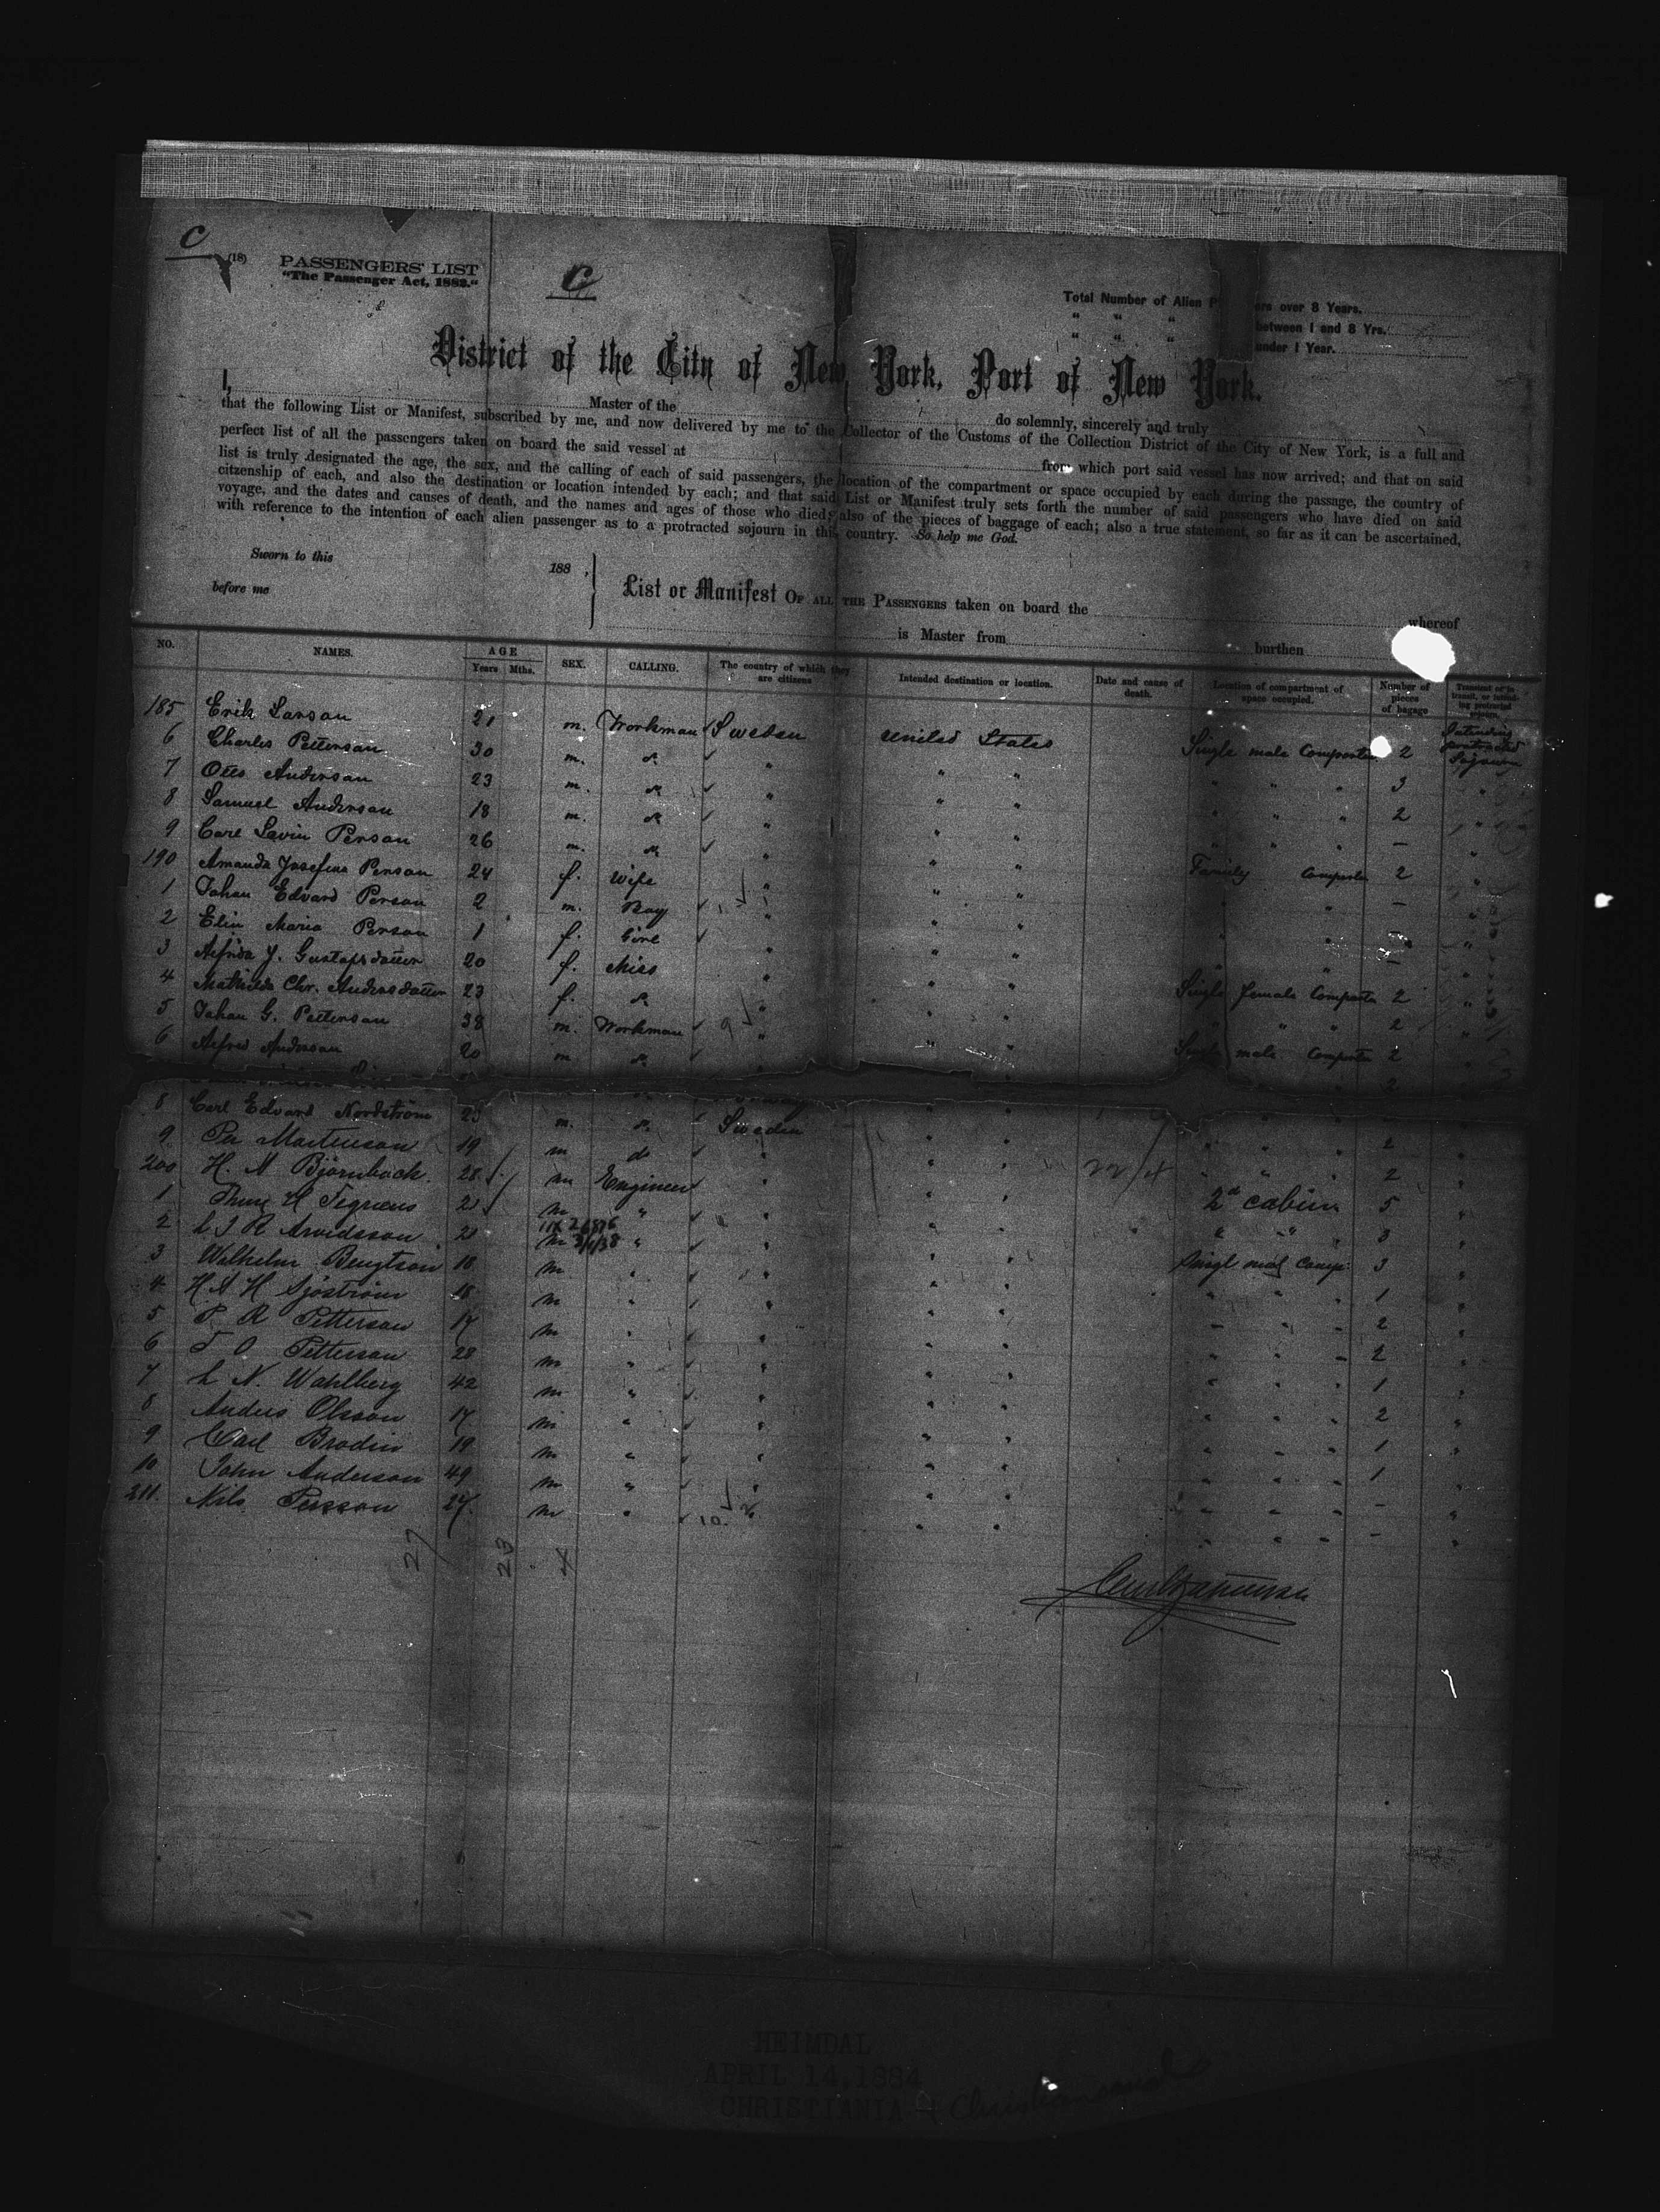 C
(18) PASSENGERS' LIST
"The Passenger Act, 1882."
C
Total Number of Alien P ers over 8 Years.
" " " between 1 and 8 Yrs.
" " " under 1 Year.
District of the City of New York, Port of New York.
I, Master of the do solemnly, sincerely and truly
that the following List or Manifest, subscribed by me, and now delivered by me to the Collector of the Customs of the Collection District of the City of New York, is a full and
perfect list of all the passengers taken on board the said vessel at from which port said vessel has now arrived; and that on said
list is truly designated the age, the sex, and the calling of each of said passengers, the location of the compartment or space occupied by each during the passage, the country of
citzenship of each, and also the destination or location intended by each; and that said List or Manifest truly sets forth the number of said passengers who have died on said
voyage, and the dates and causes of death, and the names and ages of those who died; also of the pieces of baggage of each; also a true statement, so far as it can be ascertained,
with reference to the intention of each alien passenger as to a protracted sojourn in this country. So help me God.
Sworn to this 188 ,
before me
List or Manifest OF ALL THE PASSENGERS taken on board the whereof
is Master from burthen
NO. NAMES. AGE Years Mths. SEX. CALLING. The country of which they are citizens Intended destination or location. Date and cause of death. Location of compartment of space occupied. Number of pieces of bagage Transient or in transit, or intending protracted sojourn.
185 Erik Larson 21 m. Workman Sweden United States Single male Comparte 2 Intending protracted Sojourn
6 Charles Petterson 30 m. d. " " " " " " 3 "
7 Otto Anderson 23 m. d. " " " " " " 2 "
8 Samuel Anderson 18 m. d. " " " " " " — "
9 Carl Levin Person 26 m. d. " " " Family Comparte 2 "
190 Amanda Josefina Person 24 f. Wife " " " " — "
1 Johan Edvard Person 2 m. Boy " " " " — "
2 Elin Maria Person 1 f. Girl " " " " — "
3 Alfrida J. Gustafsdatter 20 f. Miss " " " Single female Comparte 2 "
4 Mathilda Chr. Andersdatter 23 f. d. " " " " " " 2 "
5 Johan G. Petterson 38 m. Workman " " " Single male Comparte 2 "
6 Alfred Anderson 20 m d. " " " 2
8 Carl Edvard Nordström 23 m. d. Sweden " " " " 2 "
9 Per Martenson 19 m do " " " " 2 "
200 H. N Björnback. 28 m Engineer " " " 2d cabin 5 "
1 Thure H Tegnens 21 m " " " " " " 3 "
2 L J R Arvidsson 21 m " " " " Singl mal Comp: 3 "
3 Wilhelm Bengtson 18 m " " " " " " " 1 "
4 H A H Sjöström 18 m " " " " " " " 2 "
5 P. R Petterson 17 m " " " " " " " 2 "
6 J O Petterson 28 m " " " " " " " 1 "
7 L N. Wahlberg 42 m " " " " " " " 2 "
8 Anders Olsson 17 m " " " " " " " 1 "
9 Carl Brodin 19 m " " " " " " " 1 "
10 John Anderson 49 m " " " " " " " – "
211. Nils Persson 27. m " " " " " " " – "
27 23 4
HEIMDAL
APRIL 14, 1884
CHRISTIANIA & Christiansand